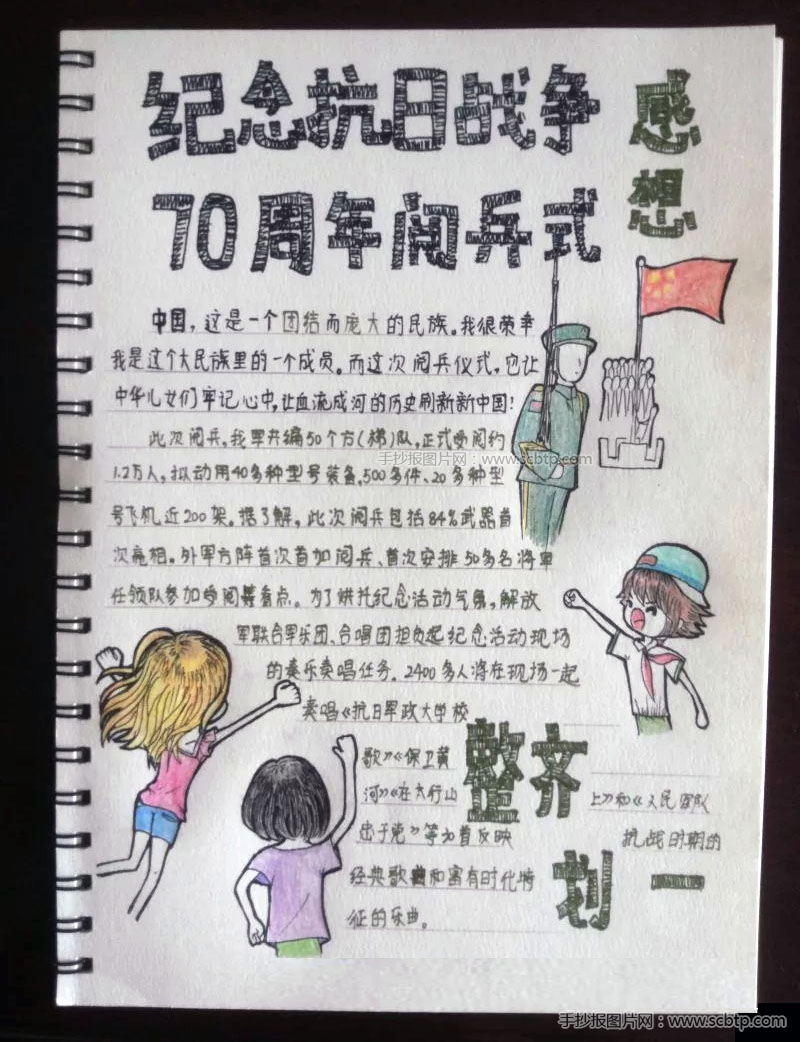 纪念抗日战争
70周年阅兵式
感想
中国，这是一个团结而庞大的民族。我很荣幸
我是这个大民族里的一个成员。而这次阅兵仪式，它让
中华儿女们牢记心中，让血流成河的历史刷新新中国！
此次阅兵，我军共编50个方（梯）队，正式受阅约
手抄报图片网：www.scbtp.com
1.2万人，拟动用40多种型号装备，500多件、20多种型
号飞机近200架。据了解，此次阅兵包括84%武器首
次亮相。外军方阵首次首加阅兵、首次安排50多名将军
任领队参加受阅等看点。为了烘托纪念活动气氛，解放
军联合军乐团、合唱团担负起纪念活动现场
的奏乐奏唱任务。2400多人将在现场一起
奏唱《抗日军政大学校
歌》《保卫黄
河》《在太行山
上》和《人民军队
忠于党》等为首反映
抗战时期的
经典歌曲和富有时代特
征的乐曲。
整齐
划一
手抄报图片网：www.scbtp.com